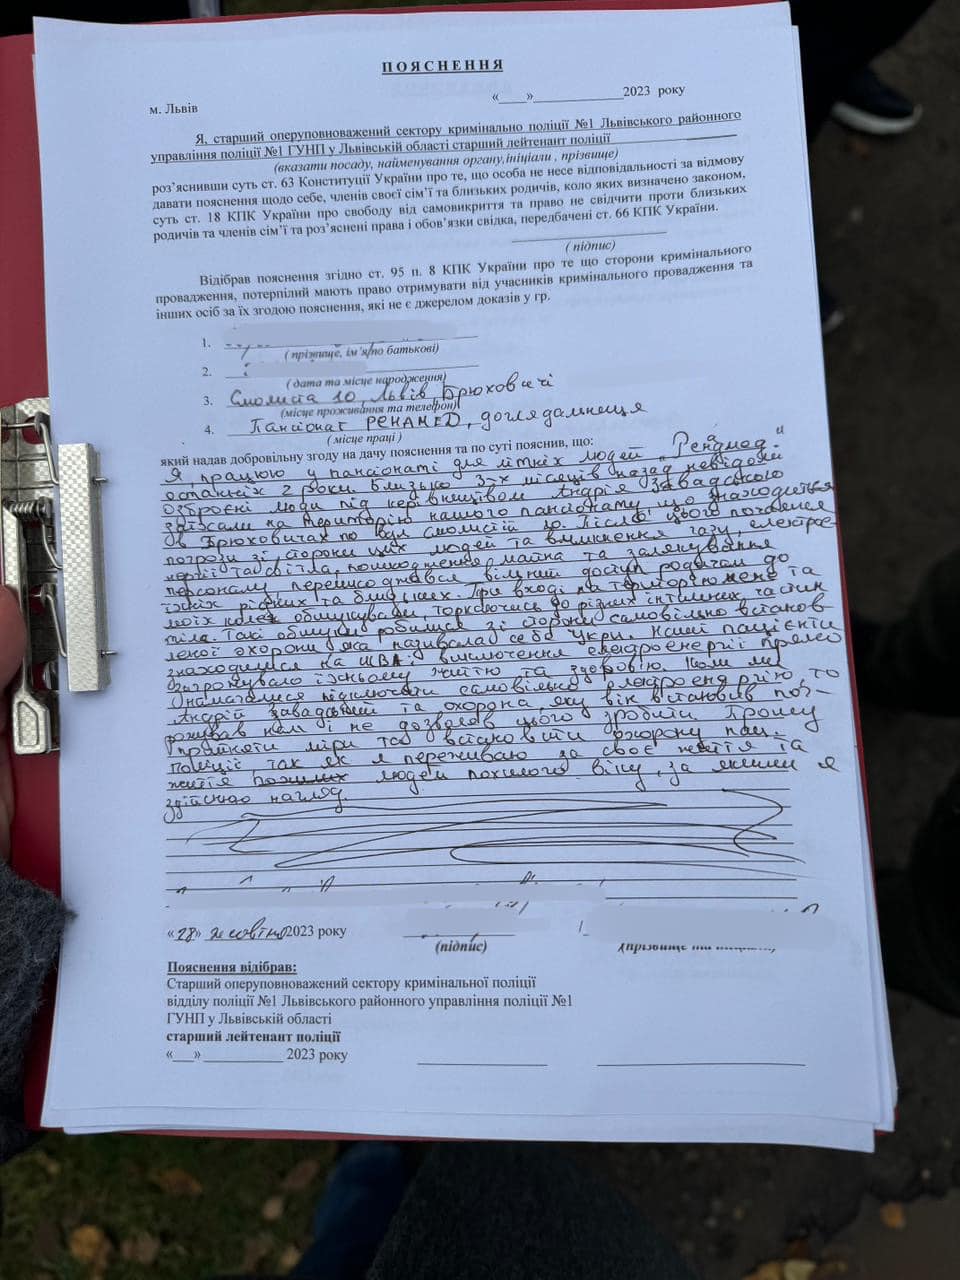 ПОЯСНЕННЯ
м. Львів
«___»____________2023 року
Я, старший оперуповноважений сектору кримінально поліції №1 Львівського районного
управління поліції №1 ГУНП у Львівській області старший лейтенант поліції
(вказати посаду, найменування органу,ініціали , прізвище)
роз’яснивши суть ст. 63 Конституції України про те, що особа не несе відповідальності за відмову
давати пояснення щодо себе, членів своєї сім’ї та близьких родичів, коло яких визначено законом,
суть ст. 18 КПК України про свободу від самовикриття та право не свідчити проти близьких
родичів та членів сім’ї та роз’яснені права і обов’язки свідка, передбачені ст. 66 КПК України.
( підпис)
Відібрав пояснення згідно ст. 95 п. 8 КПК України про те що сторони кримінального
провадження, потерпілий мають право отримувати від учасників кримінального провадження та
інших осіб за їх згодою пояснення, які не є джерелом доказів у гр.
1.
( прізвище, ім’я/по батькові)
2.
( дата та місце народження)
3. Смолиста 10, Львів, Брюховичі
(місце проживання та телефон)
4. Пансіонат РЕНАМЕD, доглядальниця
( місце праці )
який надав добровільну згоду на дачу пояснення та по суті пояснив, що:
Я, працюю у пансіонаті для літніх людей „Ренамед"
останніх 2 роки. Близько 3-х місяців назад невідомі
озброєні люди під керівництвом Андрія Завадського
заїхали на територію нашого пансіонату що знаходиться
в Брюховичах по вул Смолистій 10. Після цього почалися
погрози зі сторони цих людей та вимкнення газу, електро-
енергії та світла, пошкодження майна та залякування
персоналу, перешкоджався вільний доступ родичам до
їхніх рідних та близьких. При вході на територію мене та
моїх колег обшукували, торкаючись до різних інтимних частин
тіла. Такі обшуки робилися зі сторони самовільно встанов
леної охорони яка називала себе Укри. Наші пацієнти
знаходилися на ШВЛ і виключення електроенергії прямо
загрожувало їхньому життю та здоров'ю. Коли ми
намагалися підключити самовільно електроенергію, то
Андрій Завадський та охорона, яку він встановив пог-
рожував нам і не дозволяв цього зробити. Прошу
прийняти міри та встановити охорону
поліції так як я переживаю за своє життя та
життя людей похилого віку, за якими я
здійснюю нагляд.
«28» жовтня 2023 року
(підпис)
/
(прізвище та ініціали)
Пояснення відібрав:
Старший оперуповноважений сектору кримінальної поліції
відділу поліції №1 Львівського районного управління поліції №1
ГУНП у Львівській області
старший лейтенант поліції
«___» ___________ 2023 року